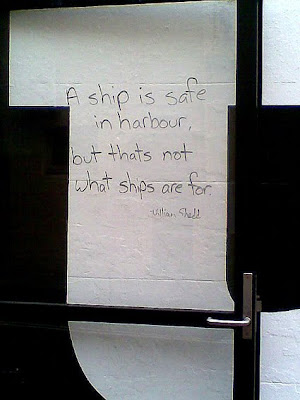 A ship is safe
in harbour,
but thats not
what ships are for.
William Shedd